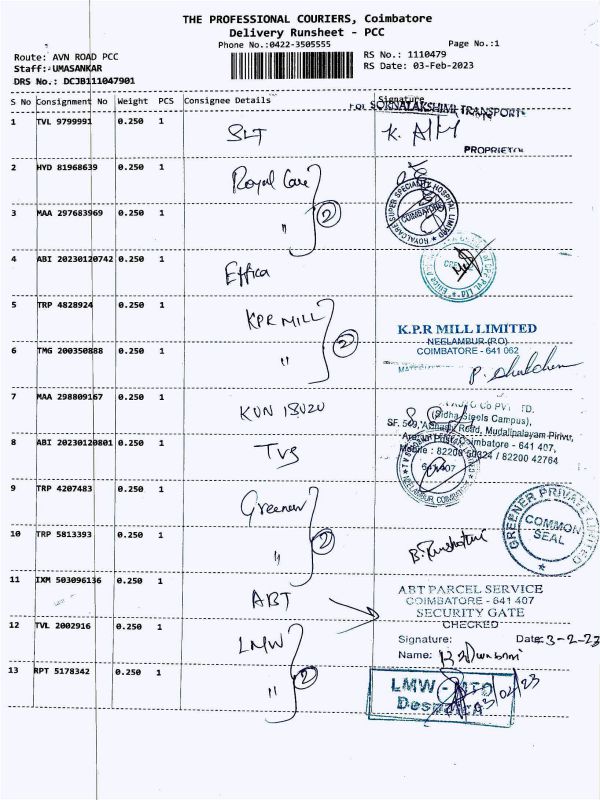 THE PROFESSIONAL COURIERS, Coimbatore
Delivery Runsheet - PCC
Phone No.:0422-3505555
Page No.:1
Route: AVN ROAD PCC
RS No.: 1110479
Staff:-UMASANKAR
RS Date: 03-Feb-2023
DRS No.: DCJB111047901
S No Consignment No Weight PCS Consignee Details Signature
FOR SORNALAKSHIMI TRANSPORT
1 TVL 9799991 0.250 1 SLT
PROPRIETOR
2 HYD 81968639 0.250 1 Royal Care
ROYALCARE SUPER SPECIALITY HOSPITAL LIMITED
COIMBATORE
3 MAA 297683969 0.250 1 " 2
4 ABI 20230120742 0.250 1 Effica
5 TRP 4828924 0.250 1 KPR MILL
K.P.R MILL LIMITED
NEELAMBUR (P.O)
COIMBATORE - 641 062
6 TMG 200350888 0.250 1 " 2
7 MAA 298809167 0.250 1 KUN ISUZU
(Sidha Steels Campus),
Road, Mudalipalayam Pirivu,
Coimbatore - 641 407,
Mobile : 82200 50324 / 82200 42764
8 ABI 20230120801 0.250 1 TVS
641 407
NEELAMBUR, COIMBATORE
9 TRP 4207483 0.250 1 Greener
GREENER PRIVATE LIMITED
COMMON
SEAL
10 TRP 5813393 0.250 1 " 2
11 IXM 503096136 0.250 1 ABT
ABT PARCEL SERVICE
COIMBATORE - 641 407
SECURITY GATE
CHECKED
12 TVL 2002916 0.250 1 LMW
Signature: Date: 3-2-23
Name:
13 RPT 5178342 0.250 1 " 2
LMW - MTD
Despatch
03/02/23